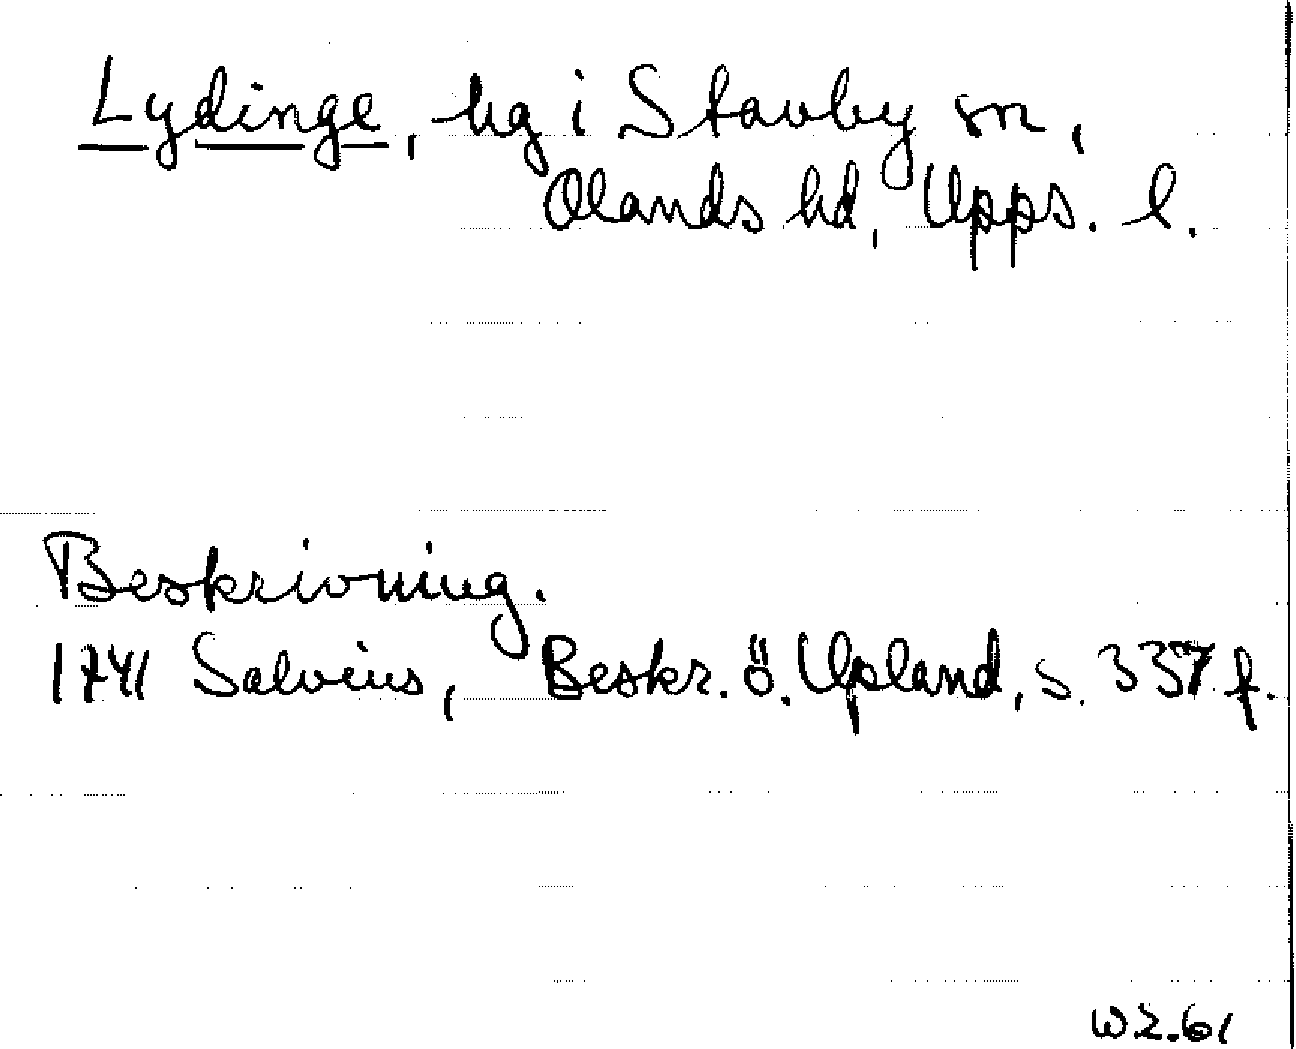 Lydinge, hg i Stavby sn,
Olands hd, Upps. l.
Beskrivning.
1741 Salvius, Beskr. ö. Upland, s. 337 f.
W2.61